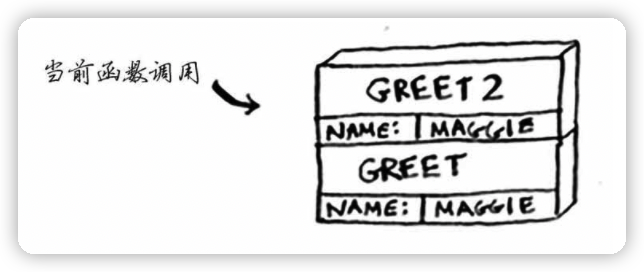 当前函数调用
GREET 2
NAME: MAGGIE
GREET
NAME: MAGGIE